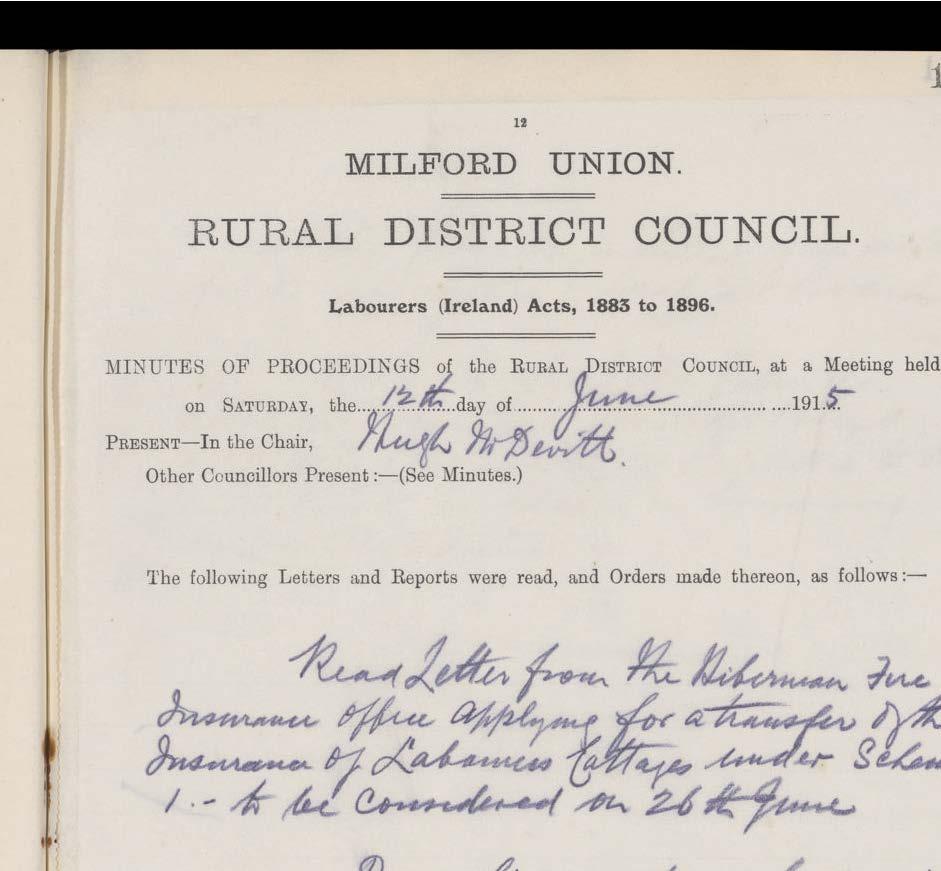 1
12
MILFORD UNION.
RURAL DISTRICT COUNCIL.
Labourers (Ireland) Acts, 1883 to 1896.
MINUTES OF PROCEEDINGS of the RURAL DISTRICT COUNCIL, at a Meeting held
on SATURDAY, the 12th day of June 1915
PRESENT—In the Chair, Hugh McDevitt.
Other Councillors Present :—(See Minutes.)
The following Letters and Reports were read, and Orders made thereon, as follows :—
Read Letter from the Hibernian Fire
Insurance Office applying for a transfer of th
Insurance of Labourers Cottages under Schem
1. - to be Considered on 26th June